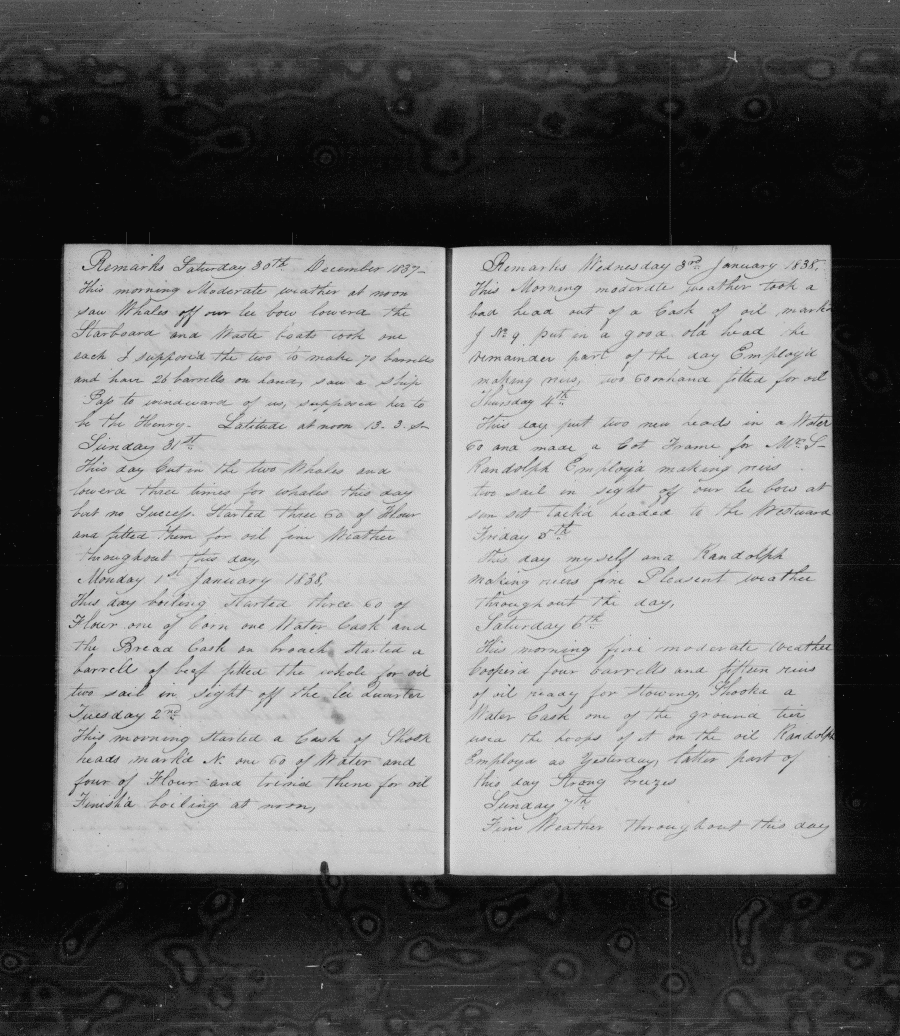 Remarks Saturday 30th December 1837-
This morning Moderate weather at noon
saw Whales off our lee bow lowerd the
Starboard and Waste boats took one
each I suppos'd the two to make 70 barrells
and have 26 barrells on hand, saw a ship
Pass to windward of us, supposed her to
be the Henry- Latitude at noon 13.3.S-
Sunday 31st
This day Cut in the two Whales and
lowerd three times for whales this day
but no Success. Started three 60 of Flour
and fitted them for oil fine Weather
throughout this day,
Monday 1st January 1838,
This day boiling Started three 60 of
Flour one of Corn one Water Cask and
the Bread Cask on broach Started a
barrell of beef fitted the whole for oil
two sail in sight off the lee quarter
Tuesday 2nd
This morning Started a Cask of Shook
heads mark'd N. one 60 of Water and
four of Flour and trim'd them for oil
Finish'd boiling at noon,
Remarks Wednesday 3rd January 1838,
This Morning moderate weather took a
bad head out of a Cask of oil mark'd
J No 9 put in a good old head the
remainder part of the day Employ'd
making rivs, two 60 onhand fitted for oil
Thursday 4th
This day put two new heads in a Water
60 and made a Cot Frame for Mr S-
Randolph Employ'd making rivs
two sail in sight off our lee bow at
sun set tack'd headed to the Westward
Friday 5th
This day myself and Randolph
making rivs fine Pleasent weather
throughout the day,
Saturday 6th
This morning fine moderate Weather
Cooperd four barrells and fifteen rivs
of oil ready for Stowing, Shookd a
Water Cask one of the ground tier
used the hoops of it on the oil Randolph
Employd as Yesterday, latter part of
this day Strong breezes
Sunday 7th
Fine Weather throughout this day